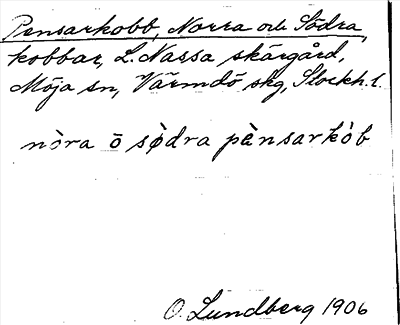 Pensarkobb, Norra och Södra,
kobbar, L. Nassa skärgård,
Möja sn, Värmdö skg, Stockh. l.
nòra ō sø̀dra pæ̀nsarkòb
O. Lundberg 1906